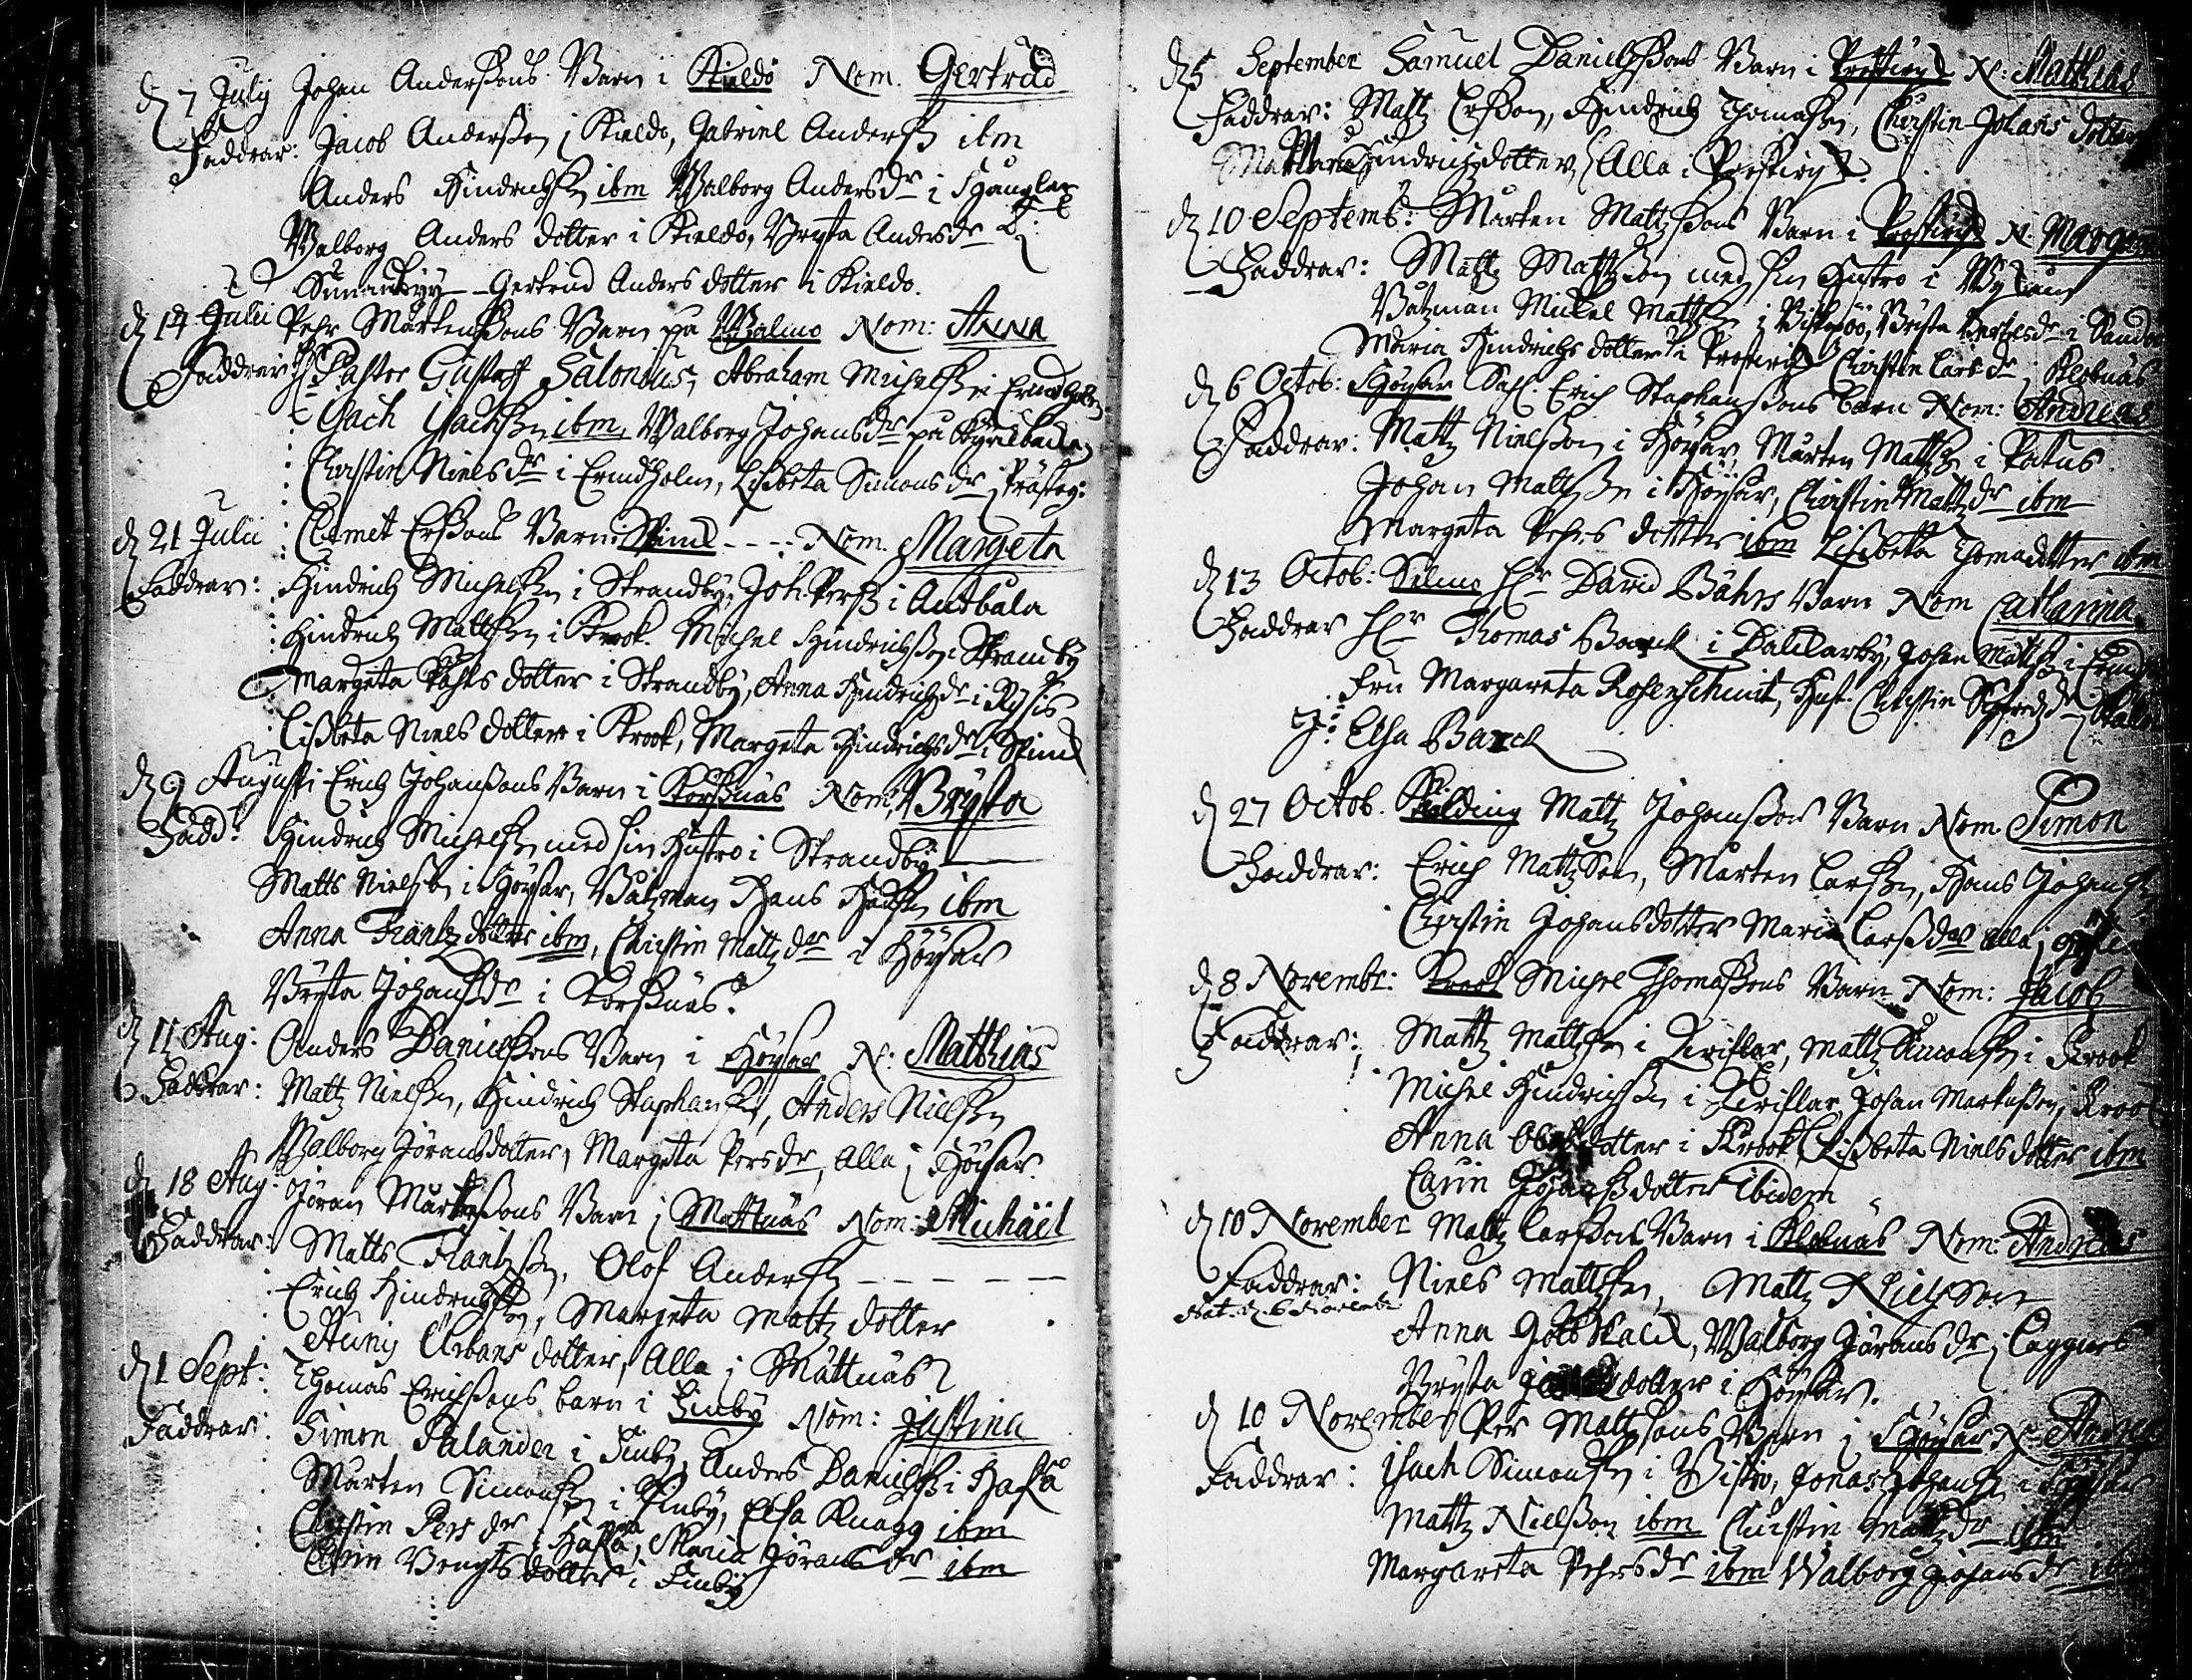 d. 7 Julij Johan Anderssons Barn i Kieldö Nom. Gertrud
Faddrar: Jacob Andersson i Kieldö, Gabriel Anderss ibm
Anders Hindrichss ibm Walborg Andersdr i
Walborg Anders dotter i Kieldö, Brijta Andersdr i
Gertrud Anders dotter i Kieldö.
d. 14 Julii Pehr Mårtenssons Barn på Walmo Nom: Anna
Faddrar: Hr Pastor Gustaff Salonius, Abraham Michelss i Ermdholm
Isach Isachss ibm, Walborg Johansdr på
Christin Nielsdr i Ermdholm, Lissbeta Simonsdr i Prästeg:
d. 21 Julii Clemet Erssons Barn i Spind - - - Nom. Margeta
Faddrar: Hindrich Michelss i Strandby, Joh. Perss i Antbäla
Hindrich Mattss i Krook. Michel Hindrichsson i Strandby
Margeta Påhls dotter i Strandby, Anna Hindrichsdr i Rysis
Lissbeta Niels dotter i Krook, Margeta Hindrichsdr i Spind
d. 9 Augusti Erich Johanssons Barn i Korssnäs Nom: Brijta
Fadd: Hindrich Michelss med sin Hustro i Strandby
Matts Nielss i Höysar, Båtzman Hans ibm
Anna Frantz dotter ibm, Christin Mattzdr i Höysar
Brijta Johanssdr i Korssnäs.
d. 11 Aug: Anders Danielssons Barn i Höysar N: Matthias
Faddrar: Matz Nielss, Hindrich Staphanss, Anders Nielss
Walborg Jöransdotter, Margeta Persdr, Alla i Höysar.
d. 18 Aug: Jöran Mårtenssons Barn i Mattnäs Nom: Michaël
Faddrar: Matts Frantzss, Olof Anderss - - - - -
Erich Hindrichss, Margeta Mattz dotter
Urbans dotter, Alla i Mattnäs
d. 1 Sept: Thomas Erichssons barn i Finby Nom: Justina
Faddrar: Simon Palander i Finby, Anders Danielss i Haka
Mårten Simonss i Finby, Elsa Knagg ibm
Christin Persdr i Haka, Maria Jöransdr ibm
Carin Bengts dotter i Finby
d. 5 September Samuel Danielssons Barn i N: Matthias
Faddrar: Mattz Ersson, Hindrich Thomass, Christin Johans dotter
Maria Hindrichzdotter, Alla i
d. 10 Septemb: Mårten Mattzsons Barn i N: Marge
Faddrar: Mattz Mattzson med sin Hustro i
Båtzman Michel Mattss i Biskopsö, Brita Bertelsdr i Sandö
Maria Hindrichs dotter i Christin Larsdr i Klobnäs
d. 6 Octob: Höysar Sahl. Erich Staphanssons barn Nom: Andreas
Faddrar: Mattz Nielsson i Höysar, Mårten Mattss i Pakus
Johan Mattss i Höysar, Christin Mattzdr ibm
Margeta Pehrs dotter ibm Lissbeta Thomadotter ibm
d. 13 Octob: Selmo Hr David Bährs Barn Nom Catharina
Faddrar Hr Thomas Barck i Dahlarby, Johan Mattss i
Fru Margareta Rosenschmit, Hust. Christin Sigfredzdr
J: Elsa Barck
d. 27 Octob. Skälding Mattz Johanssons Barn Nom. Simon
Faddrar: Erich Mattzson, Mårten Larss, Hans Johanss
Christin Johansdotter Maria Larssdr alla i
d. 8 Novembr: Krook Michel Thomassons Barn Nom: Jacob
Faddrar: Mattz Mattss i Keriklax, Mattz Simonss i Krook
Michel Hindrichss i Keriklax Johan Markusson i Krook
Anna dotter i Krook, Lissbeta Niels dotter ibm
Carin Johanssdotter ibidem
d. 10 November Mattz Larssons Barn i Klobnäs Nom: Andreas
Faddrar: Niels Mattss, Mattz Nielsson
Nat. d. 6 Novemb:
Anna Gottskalck, Walborg Jöransdr i
Brijta dotter i Höysar.
d. 10 November Per Mattzsons Barn i Höysar N: Andreas
Faddrar: Isach Simonss i Jonas Johanss i Höysar
Mattz Nielsson ibm Christin Mattzdr ibm
Margareta Pehrsdr ibm Walborg Johansdr ibm